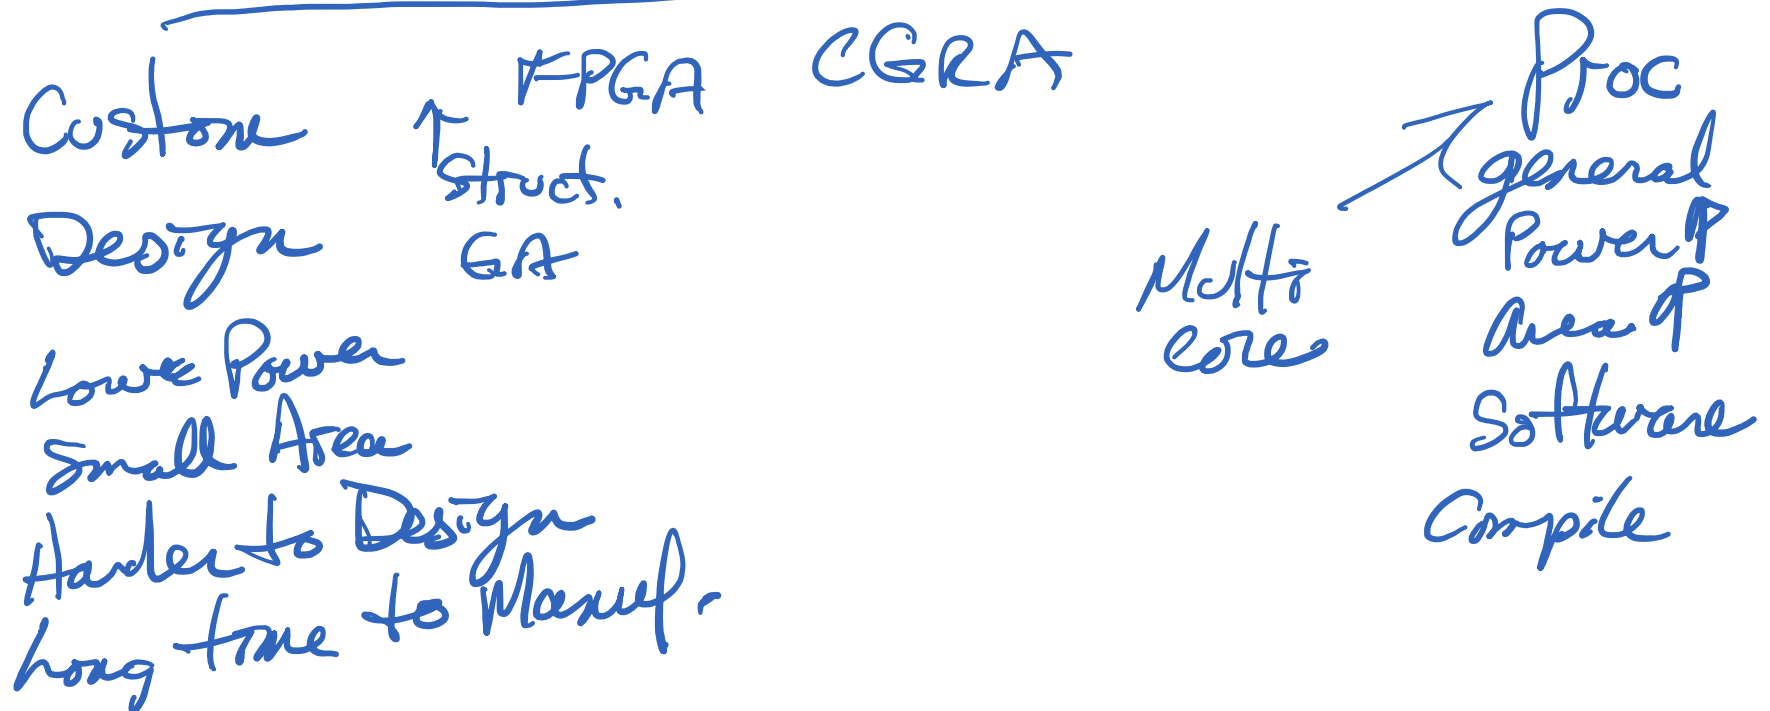 Custom
Design
Lower Power
Small Area
Harder to Design
Long time to Manuf.
FPGA
Struct.
GA
CGRA
Multi
core
Proc
general
Power ↑
Area ↑
Software
Compile